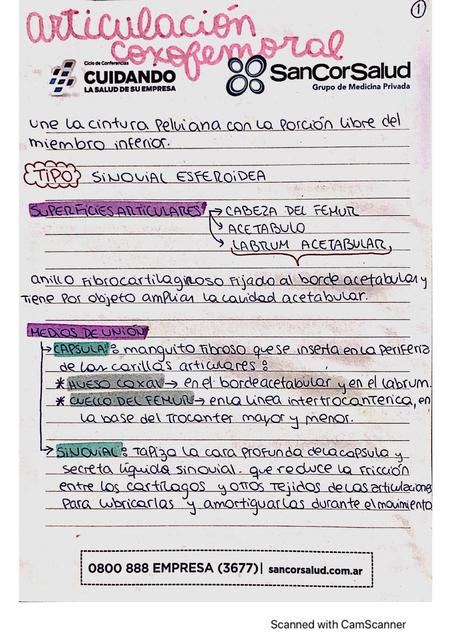 1
articulación
coxofemoral
Ciclo de Conferencias
CUIDANDO
LA SALUD DE SU EMPRESA
SanCorSalud
Grupo de Medicina Privada
une la cintura pelviana con la porción libre del
miembro inferior.
TIPO SINOVIAL ESFEROIDEA
SUPERFICIES ARTICULARES → CABEZA DEL FEMUR
→ ACETABULO
→ LABRUM ACETABULAR,
anillo fibrocartilaginoso fijado al borde acetabular y
tiene por objeto ampliar la cavidad acetabular.
MEDIOS DE UNIÓN
→ CAPSULA: manguito fibroso que se inserta en la periferia
de las carillas articulares:
* HUESO COXAL → en el borde acetabular y en el labrum.
* CUELLO DEL FEMUR → en la línea intertrocanterica, en
la base del trocanter mayor y menor.
→ SINOVIAL: tapiza la cara profunda de la capsula y
secreta líquido sinovial. que reduce la fricción
entre los cartílagos y otros tejidos de las articulaciones
para lubricarlas y amortiguarlas durante el movimiento
0800 888 EMPRESA (3677) | sancorsalud.com.ar
Scanned with CamScanner